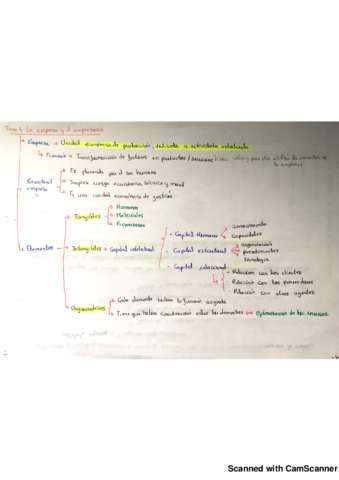 Tema 1: La empresa y el empresario
Empresa → Unidad económica de producción, dedicada a actividades industriales
Función → Transformación de factores en productos / servicios
Es planeada por el ser humano
Implica riesgo económico, técnico y moral
Es una unidad económica de gestión
Elementos
Tangibles
Humanos
Materiales
Financieros
Intangibles → Capital intelectual
- Capital Humano
Conocimiento
Capacidades
- Capital estructural
Organización
procedimientos
tecnología
- Capital relacional
- Relación con los clientes
- Relación con los proveedores
- Relación con otros agentes
Organizativos
Cada elemento realiza la función asignada
Tiene que haber coordinación entre los elementos → Optimización de los recursos
Scanned with CamScanner